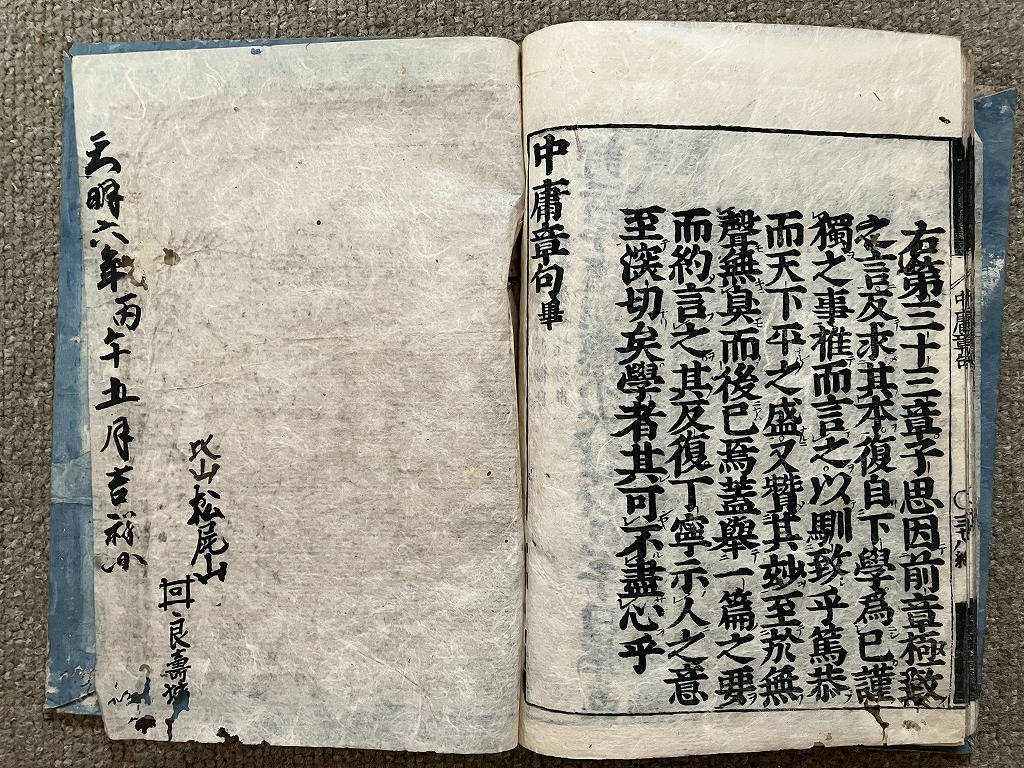 右第三十三章子思因前章極致
之言反求其本復自下學爲已謹
獨之事推而言之以馴致乎篤恭
而天下平之盛又賛其妙至於無
聲無臭而後已焉蓋舉一篇之要
而約言之其反復丁寧示人之意
至深切矣學者其可不盡心乎
中庸章句畢
中庸章句
天明六年丙午五月吉祥日
松尾山
良壽